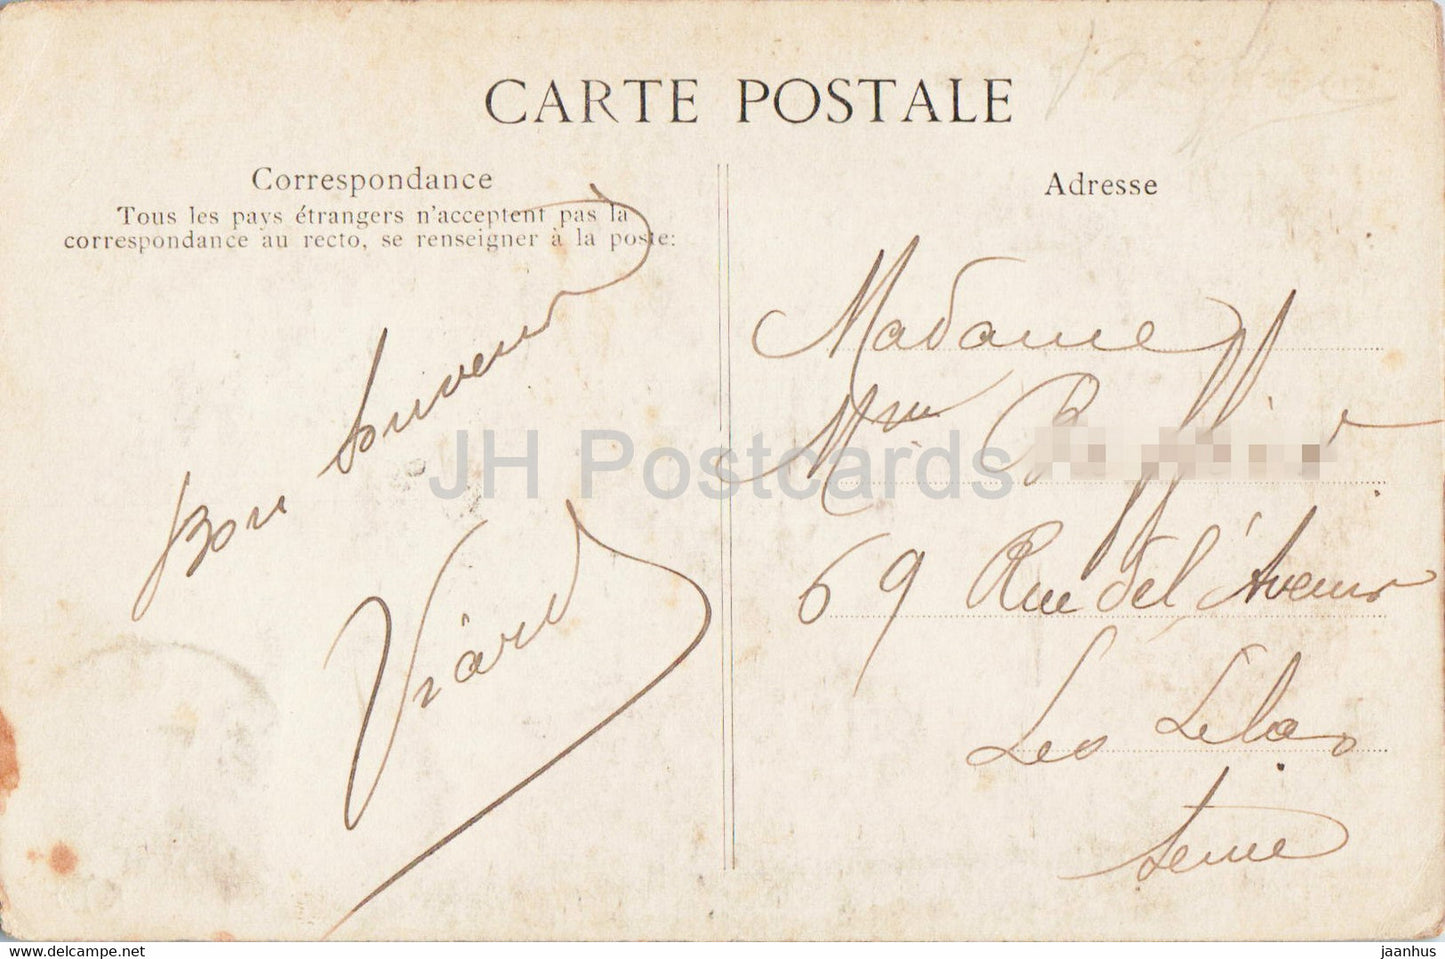 CARTE POSTALE
Correspondance
Tous les pays étrangers n'acceptent pas la
correspondance au recto, se renseigner à la poste:
Bon souvenir
Viard
Adresse
Madame
Mme
69 Rue del'Avenir
Les Lilas
Seine
JH Postcards
jaanhus